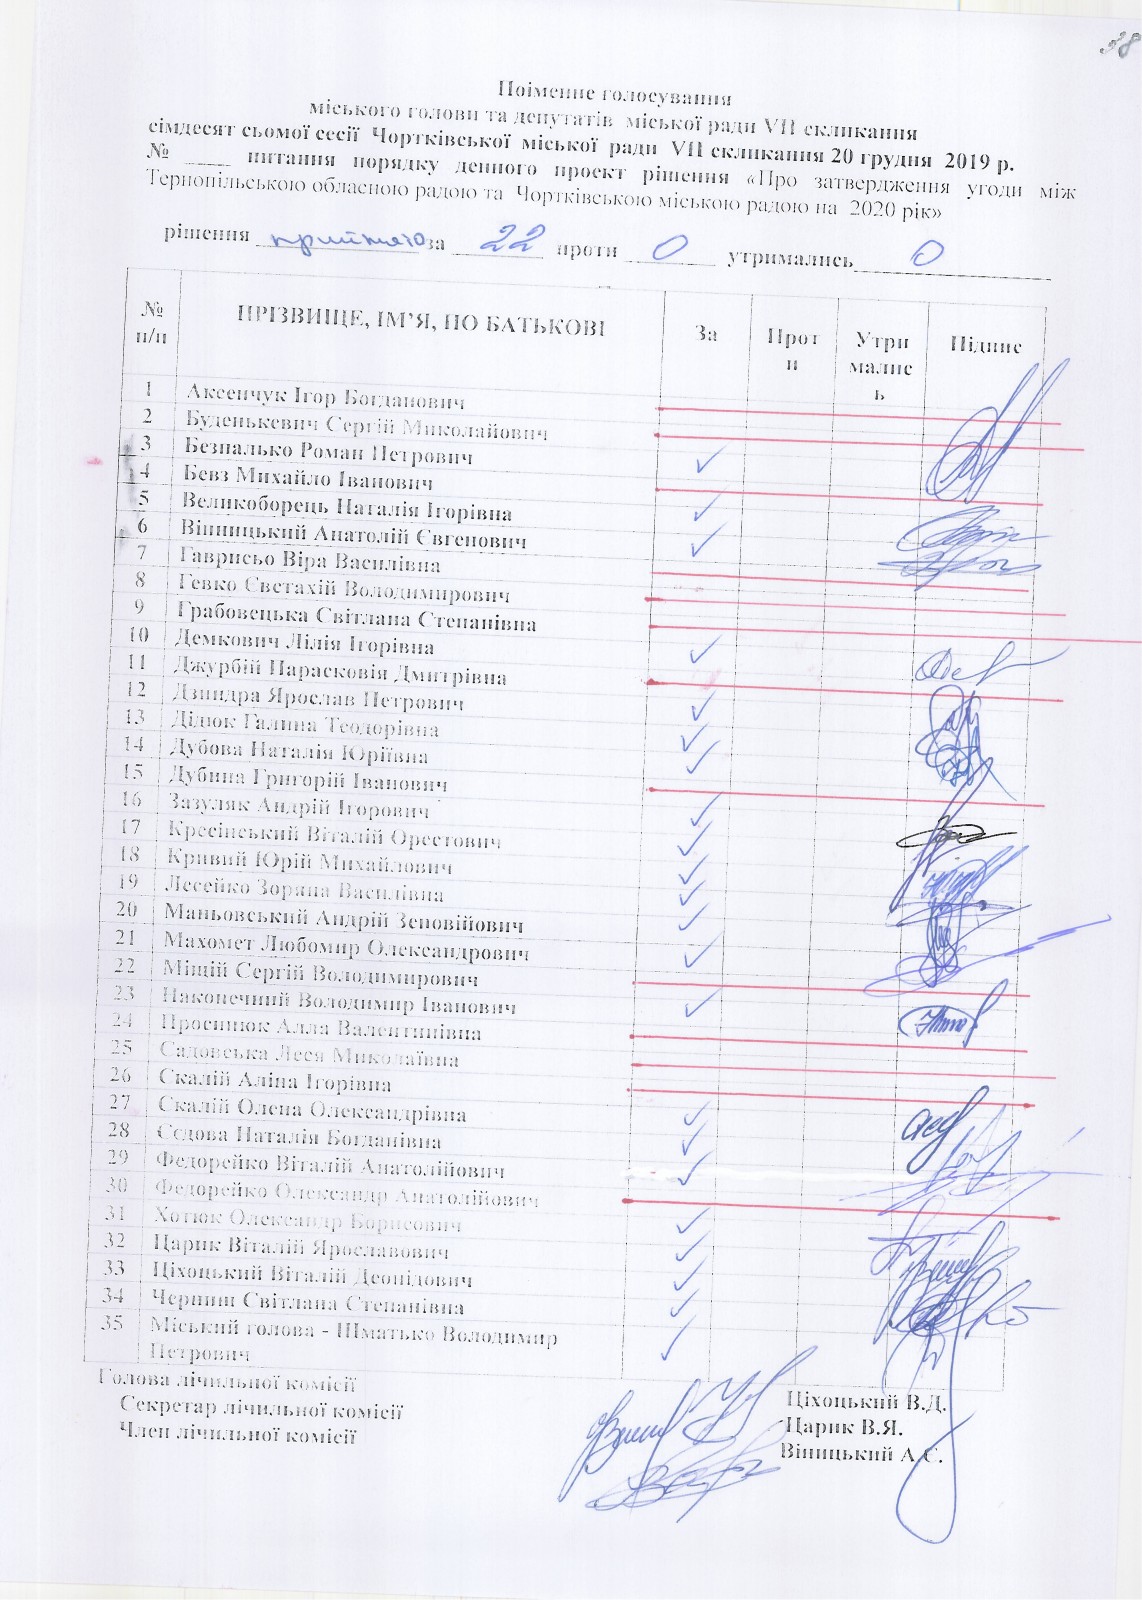 Поіменне голосування
міського голови та депутатів міської ради VII скликання
сімдесят сьомої сесії Чортківської міської ради VII скликання 20 грудня 2019 р.
№ ____ питання порядку денного проект рішення «Про затвердження угоди між
Тернопільською обласною радою та Чортківською міською радою на 2020 рік»
рішення прийнято за 22 проти 0 утримались 0
№ п/п ПРІЗВИЩЕ, ІМ’Я, ПО БАТЬКОВІ За Проти Утримались Підпис
1 Аксенчук Ігор Богданович
2 Буденькевич Сергій Миколайович
3 Безпалько Роман Петрович
4 Бевз Михайло Іванович
5 Великоборець Наталія Ігорівна
6 Вінницький Анатолій Євгенович
7 Гаврисьо Віра Василівна
8 Гевко Євстахій Володимирович
9 Грабовецька Світлана Степанівна
10 Демкович Лілія Ігорівна
11 Джурбій Парасковія Дмитрівна
12 Дзиндра Ярослав Петрович
13 Дідюк Галина Теодорівна
14 Дубова Наталія Юріївна
15 Дубина Григорій Іванович
16 Зазуляк Андрій Ігорович
17 Кресінський Віталій Орестович
18 Кривий Юрій Михайлович
19 Лесейко Зоряна Василівна
20 Маньовський Андрій Зеновійович
21 Махомет Любомир Олександрович
22 Міщій Сергій Володимирович
23 Наконечний Володимир Іванович
24 Просинюк Алла Валентинівна
25 Садовська Леся Миколаївна
26 Скалій Аліна Ігорівна
27 Скалій Олена Олександрівна
28 Сєдова Наталія Богданівна
29 Федорейко Віталій Анатолійович
30 Федорейко Олександр Анатолійович
31 Хотюк Олександр Борисович
32 Царик Віталій Ярославович
33 Ціхоцький Віталій Деонідович
34 Черниш Світлана Степанівна
35 Міський голова - Шматько Володимир
Петрович
Голова лічильної комісії Ціхоцький В.Д.
Секретар лічильної комісії Царик В.Я.
Член лічильної комісії Віницький А.Є.